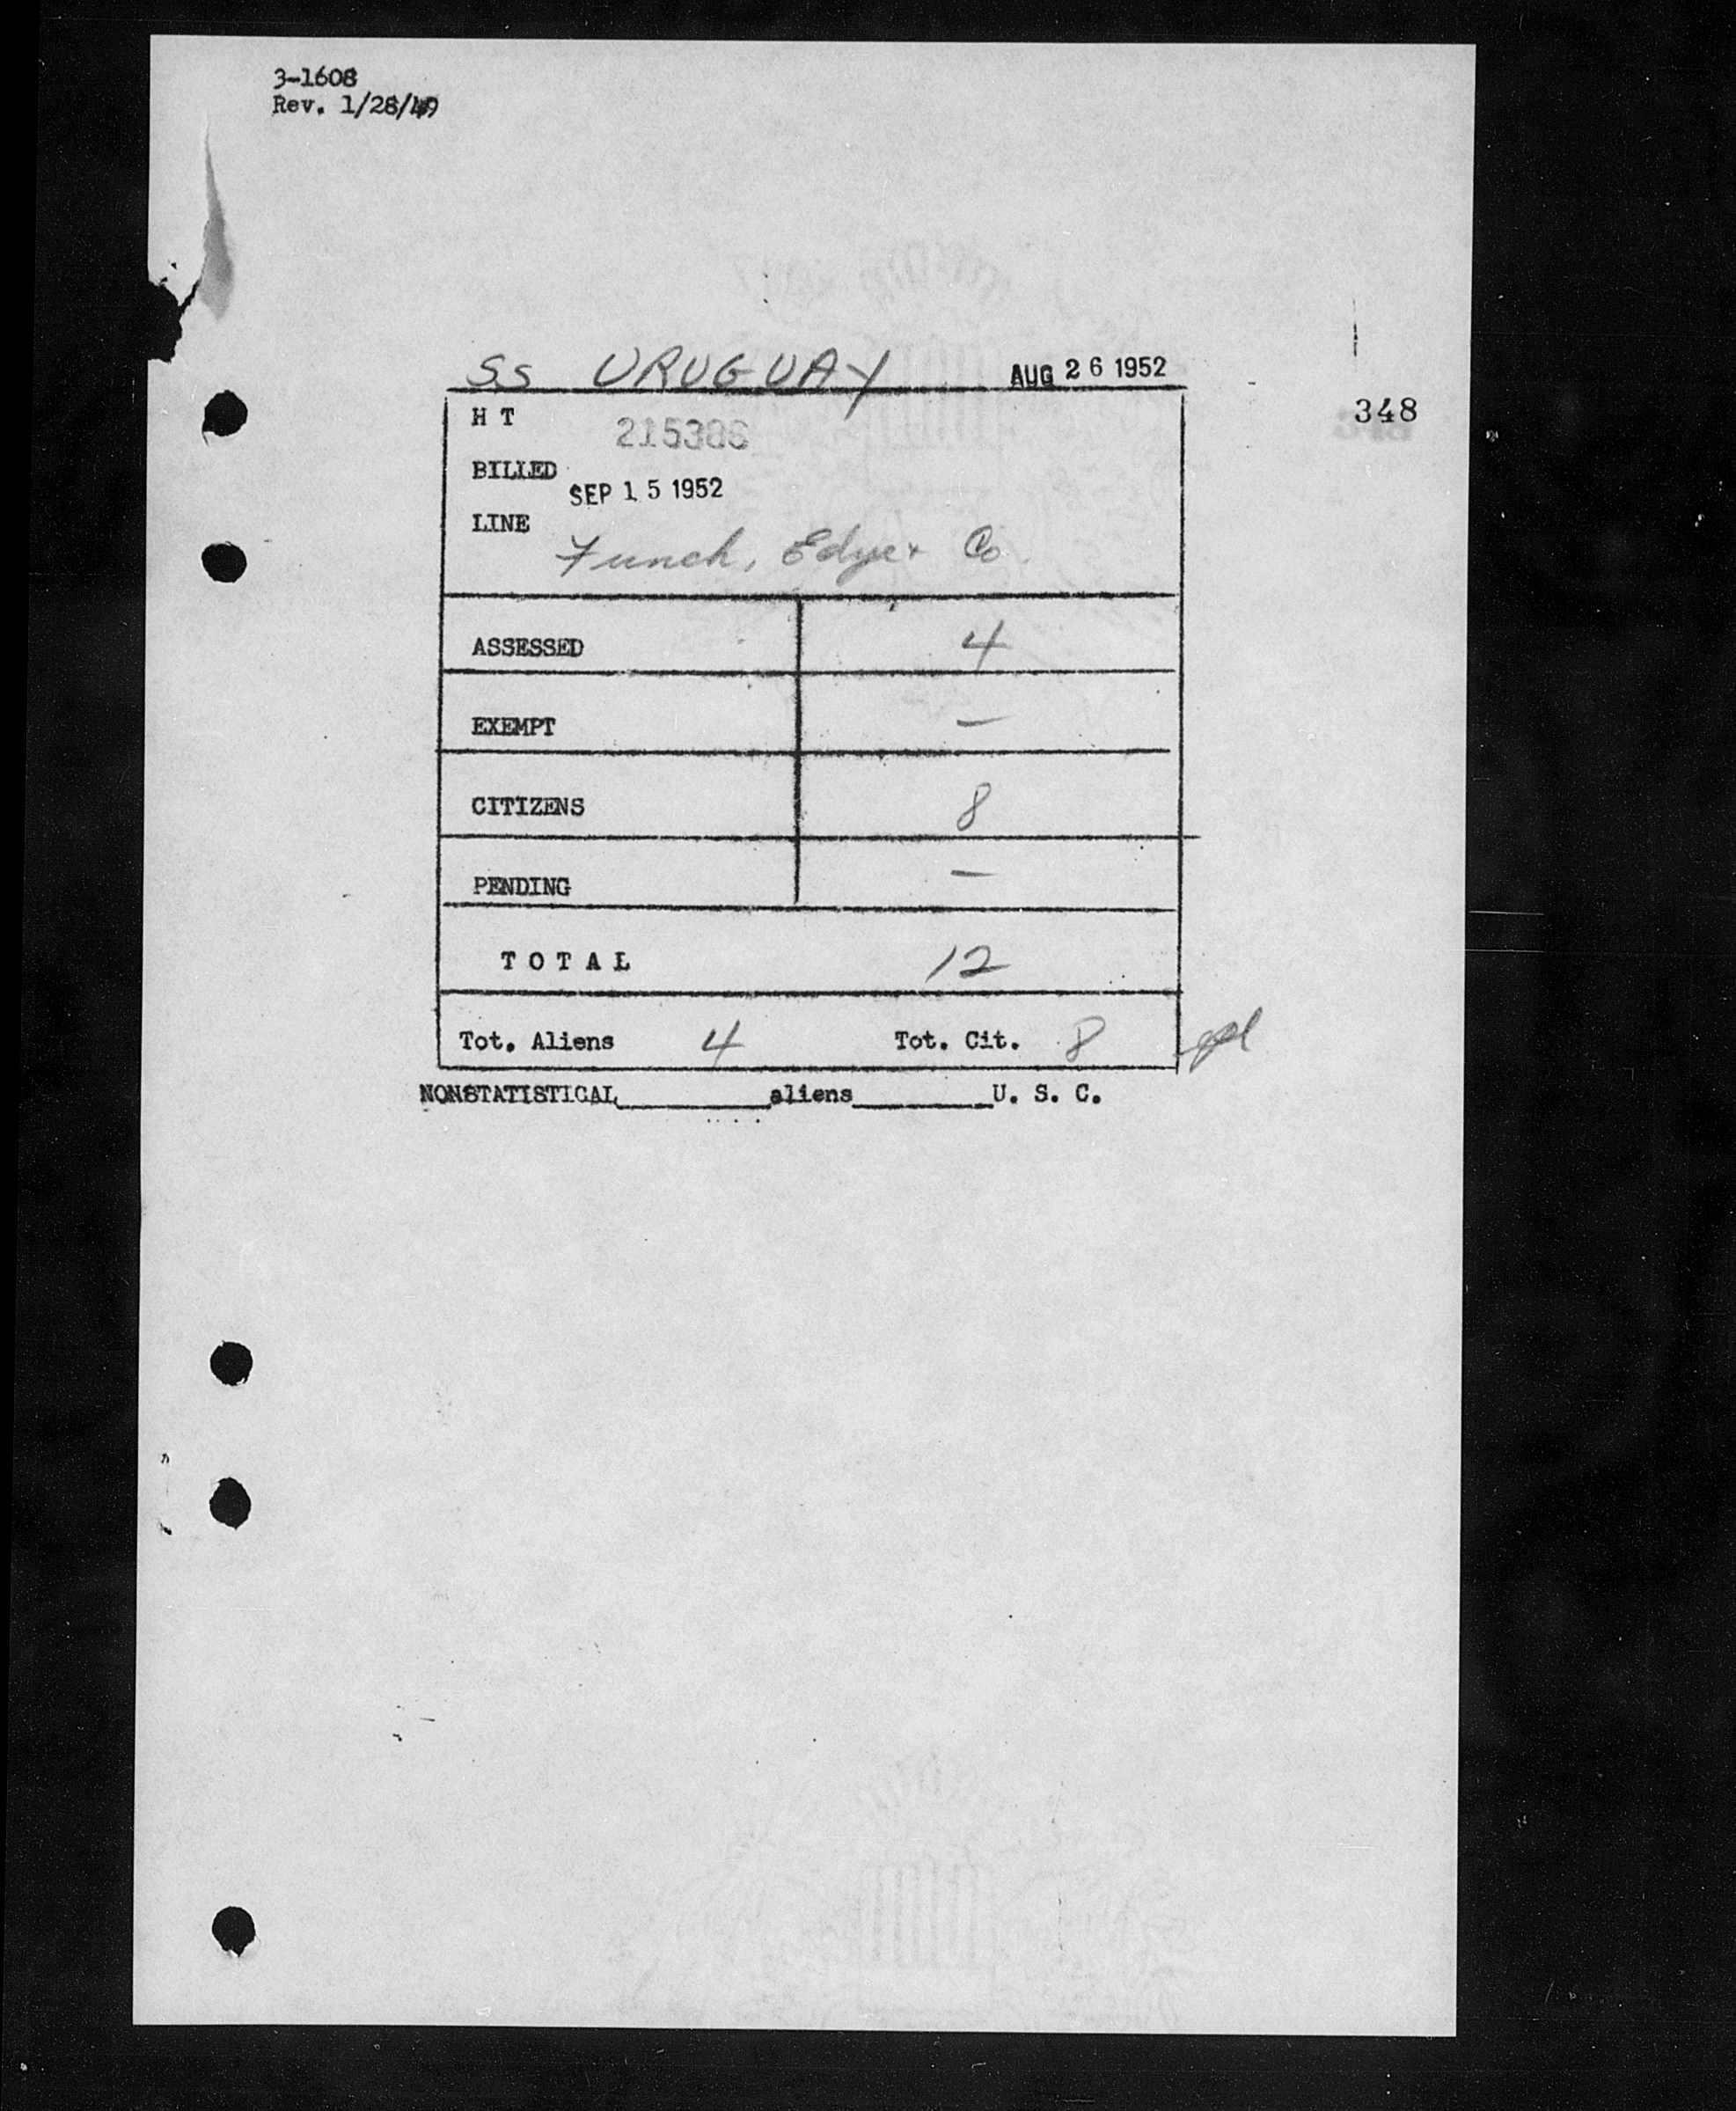 3-1608
Rev. 1/28/49
SS URUGUAY AUG 26 1952
348
H T 215386
BILLED SEP 15 1952
LINE Funch, Edye + Co.
ASSESSED 4
EXEMPT –
CITIZENS 8
PENDING –
TOTAL 12
Tot. Aliens 4 Tot. Cit. 8
NONSTATISTICAL________aliens________U. S. C.